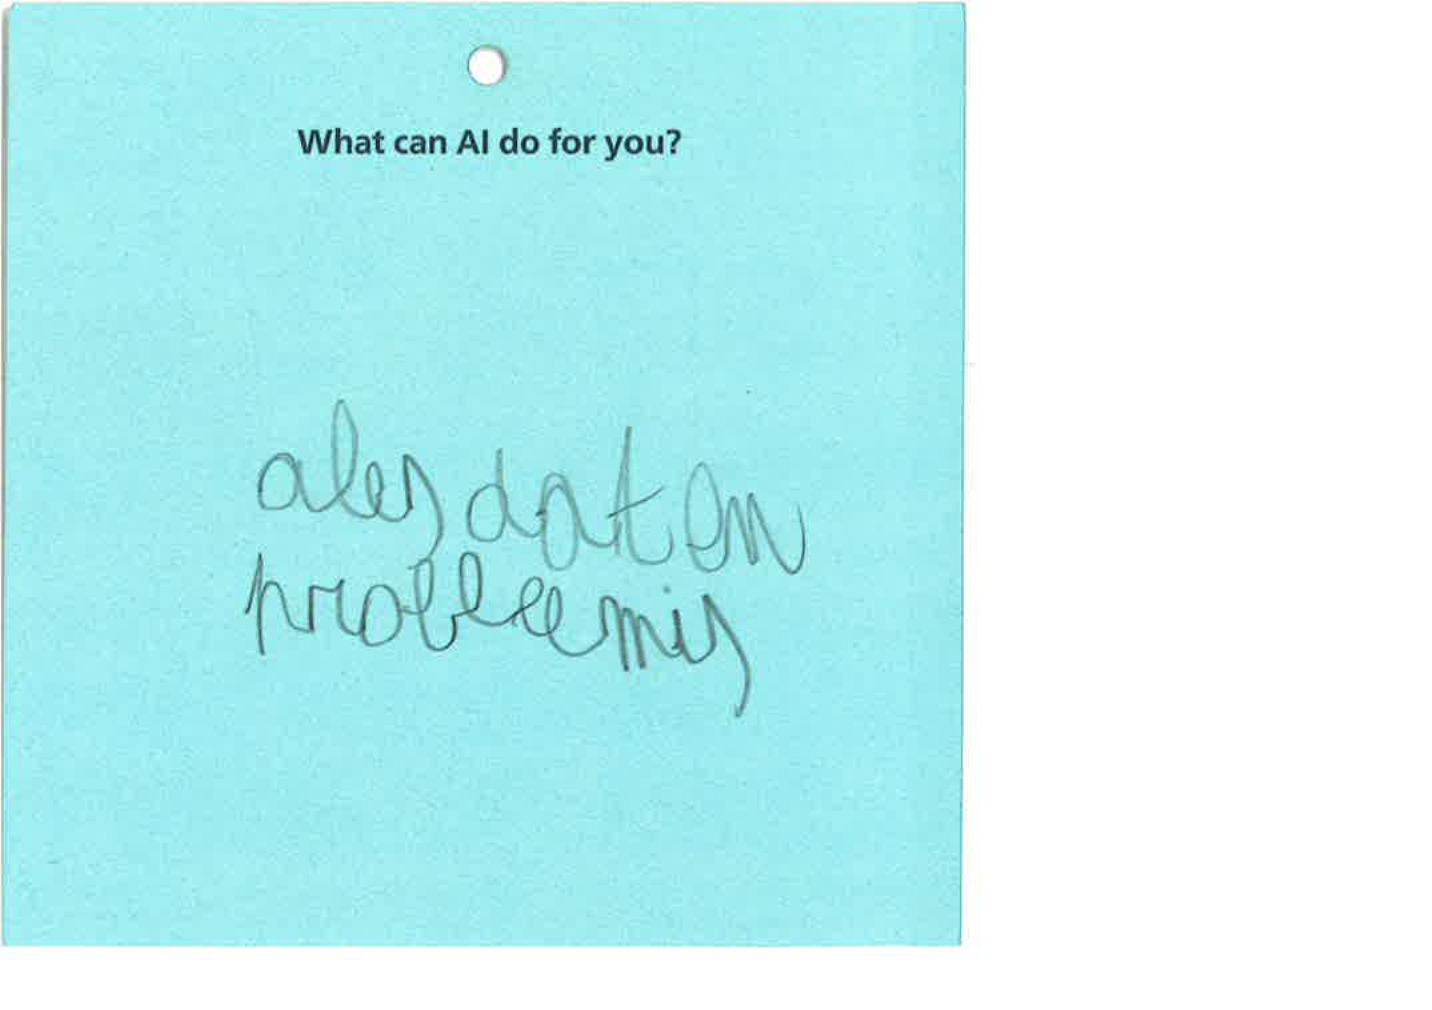 What can AI do for you?
ales dat en
probleem is